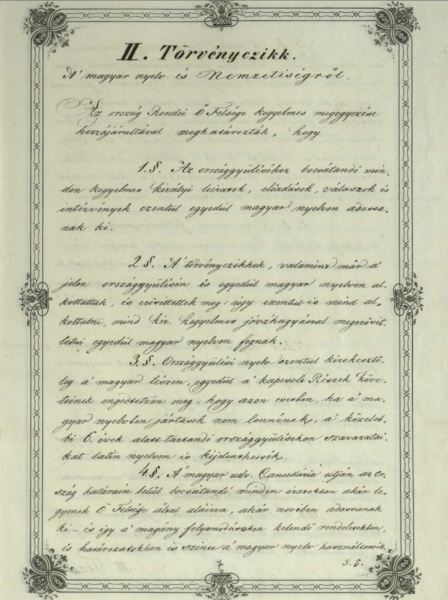 II. Törvényczikk.
A' magyar nyelv és Nemzetiségről.
Az ország Rendei ő Felsége kegyelmes megegyezése
hozzájárultával meghatározták, hogy
1. §. Az országgyűléséhez bocsátandó min-
den kegyelmes királyi levelek, előadások, válaszok és
intézvények ezentúl egyedül magyar nyelven adassa-
nak ki.
2 §. A' törvényczikkek, valamint már a'
jelen országgyűlésén is egyedül magyar nyelven al-
kottattak, és erősíttettek meg, úgy ezentúl is mind al-
kottatni, mind kir. kegyelmes jóváhagyással megerősít-
tetni egyedül magyar nyelven fognak.
3. §. Országgyűlési nyelv ezentúl kirekesztő-
leg a' magyar lészen, egyedül a' kapcsolt Részek köve-
teinek engedtetvén meg, hogy azon esetben, ha a' ma-
gyar nyelvben jártasok nem lennének, a' közeleb-
bi 6. évek alatt tartandó országgyűléseken szavazatai-
kat latin nyelven is kijelenthessék.
4. §. A' magyar udv. Cancellária útján az or-
szág határain belül bocsátandó minden iratokban akár le-
gyenek Ő Felsége által aláírva, akár nevében adassanak
ki – és így a' magány folyamodásokra kelendő rendeletekben,
és határozatokban is szinte a' magyar nyelv használtassék
5. §.